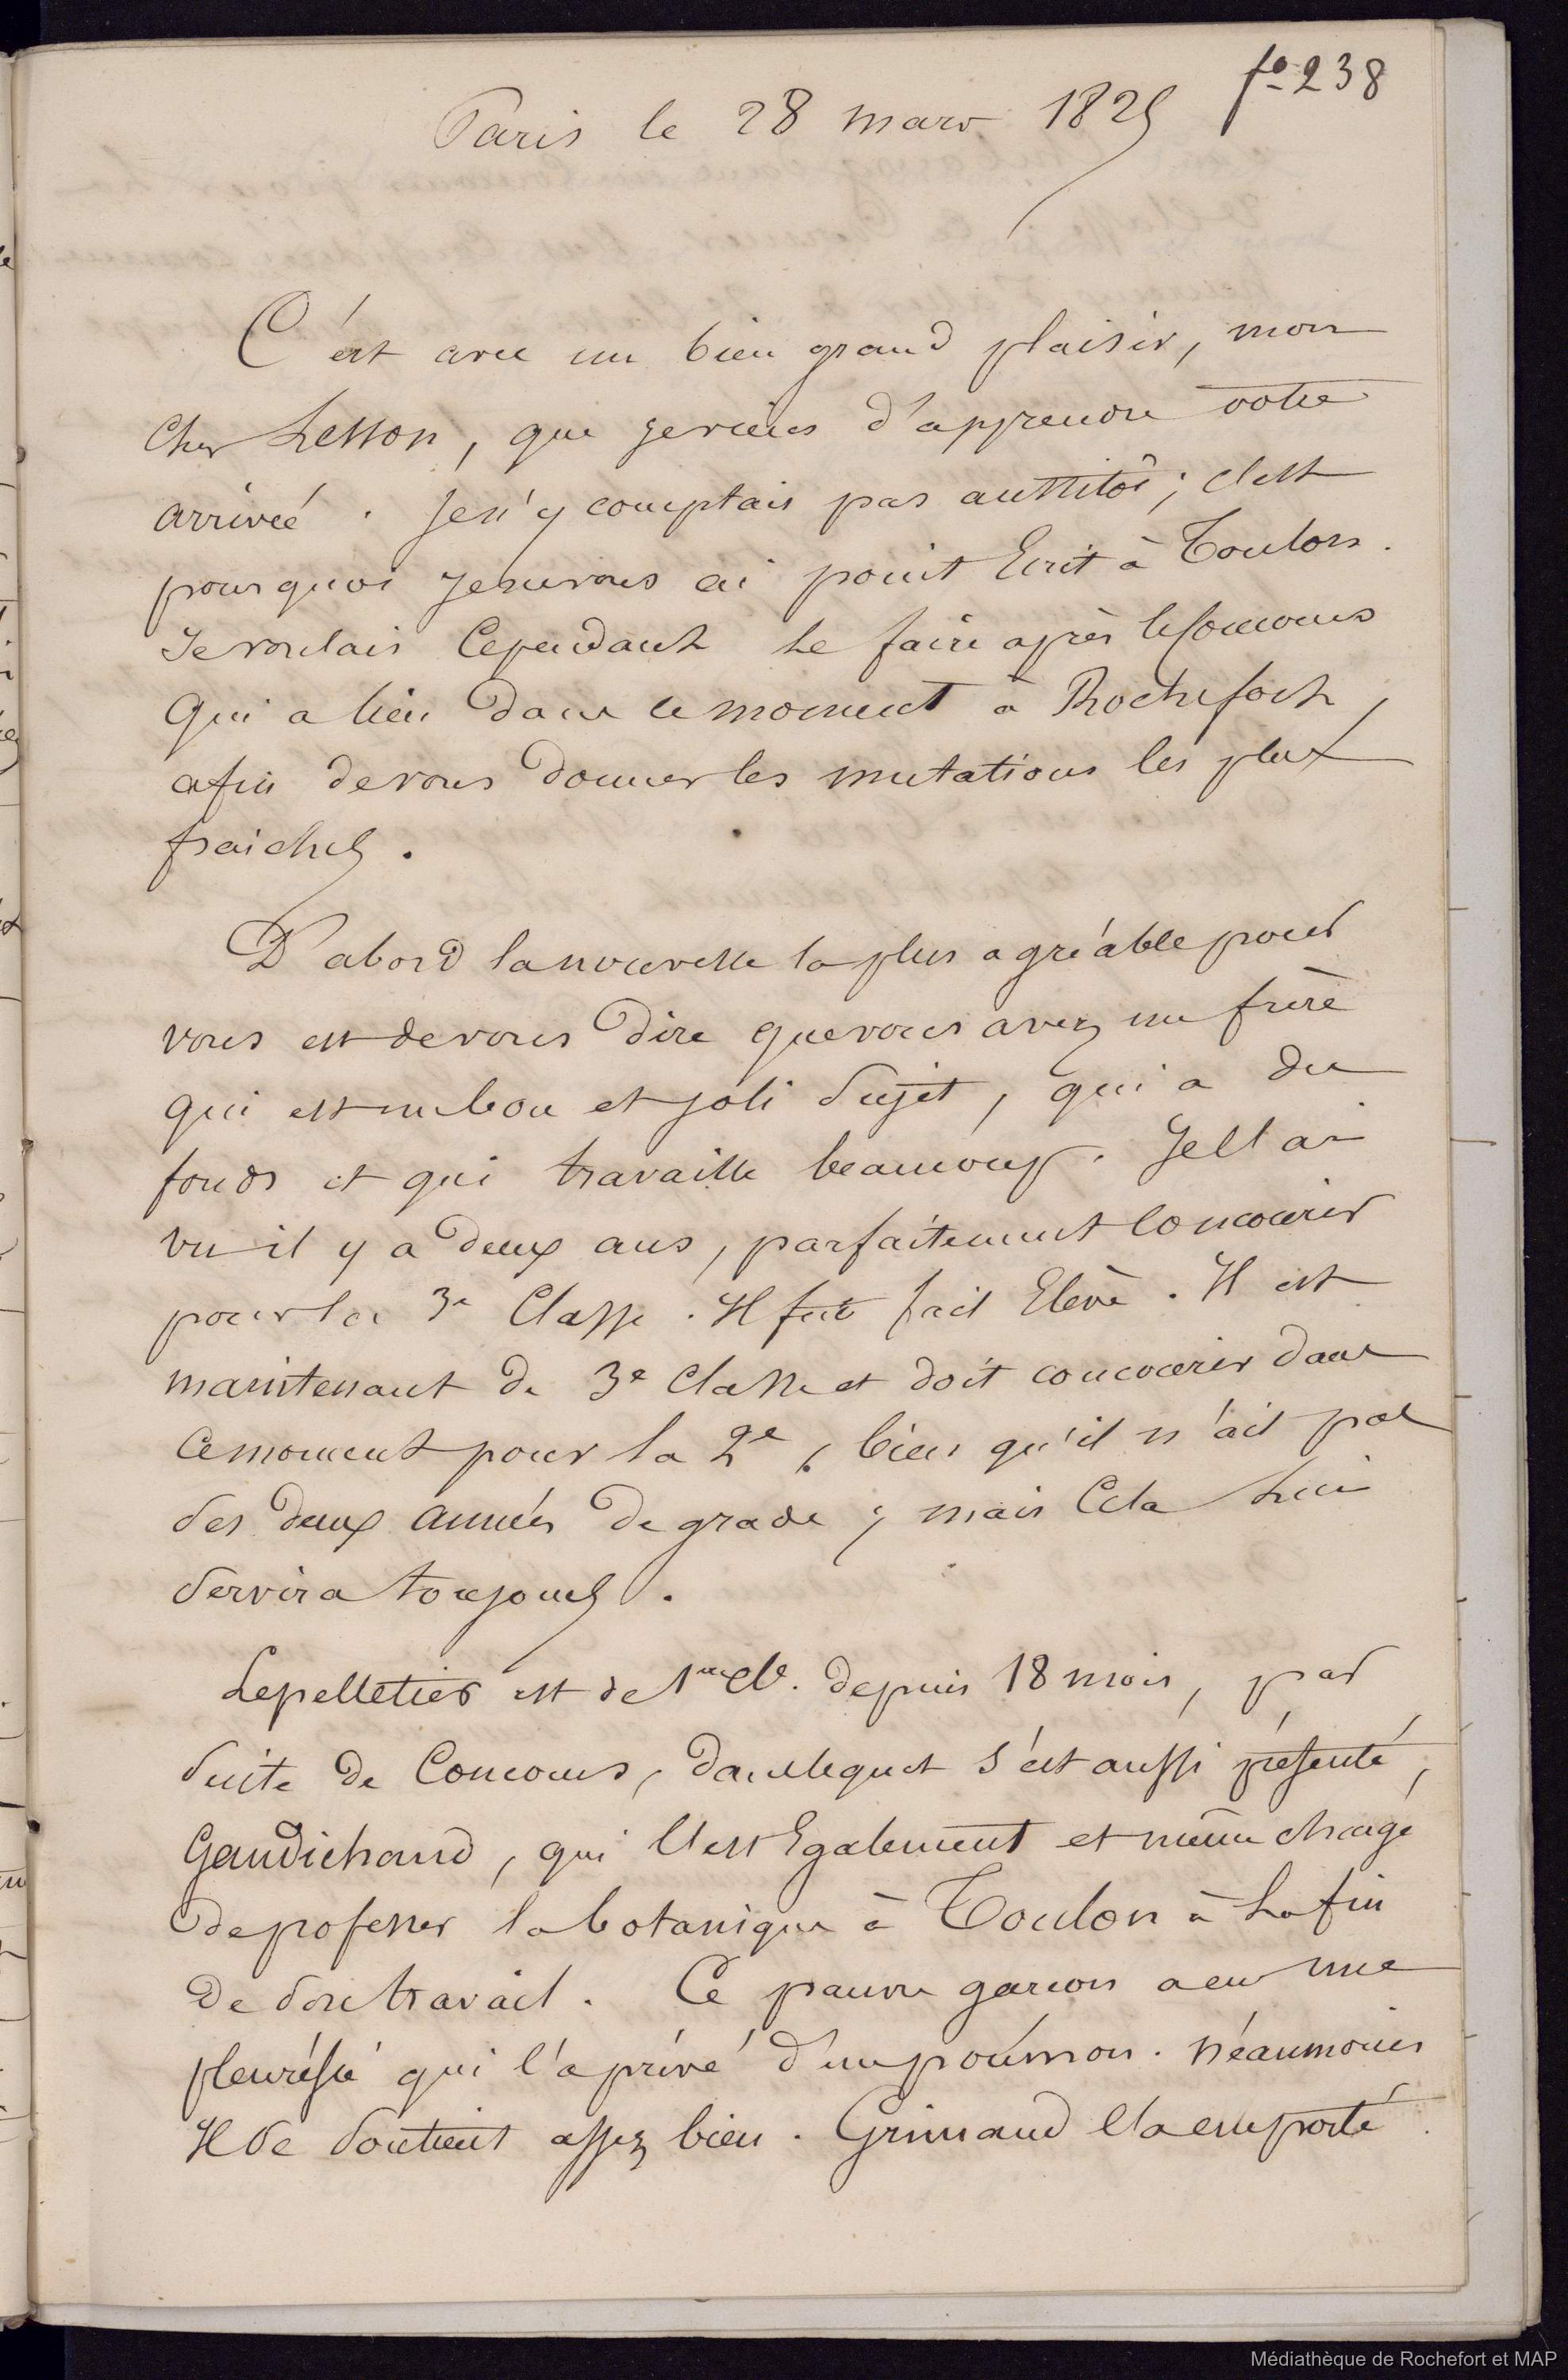 fo 238
Paris le 28 mars 1825
C'est avec un bien grand plaisir, mon
cher Lesson, que je viens d'apprendre votre
arrivée. Je n'y comptais pas aussitôt ; c'est
pourquoi je ne vous ai point Ecrit à Toulon.
Je voulais Cependant le faire après le Concours
Qui a lieu dans ce moment à Rochefort,
afin de vous donner les mutations les plus
fraiches.
D'abord la nouvelle la plus agréable pour
vous est de vous dire que vous avez un frère
qui est un bon et joli Sujet, qui a du
fonds et qui travaille beaucoup. Je l'ai
vu il y a deux ans, parfaitement Concourir
pour la 3e Classe. Il fut fait Elève. Il est
maintenant de 3e Classe et doit concourir dans
ce moment pour la 2e, bien qu'il n'ait pas
ses deux années de grade ; mais Cela lui
Servira toujours.
Lepelletier est de 1ere Cl. depuis 18 mois, par
Suite de Concours, dans lequel s'est aussi présenté,
Gaudichaud, qui l'est Egalement et même chargé
de professer la botanique à Toulon à la fin
de Son travail. Ce pauvre garcon a eu une
pleurésie qui l'a privé d'un poumon. Néanmoins
Il Se Soutient assez bien. Grimaud l'a emporté
Médiathèque de Rochefort et MAP